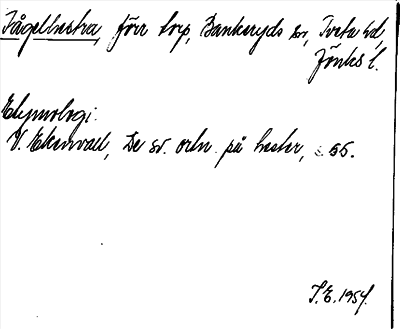 Fågelhestra, förr torp, Bankeryds sn, Tveta hd,
Jönk. l.
Etymologi:
V. Ekenvall, De sv. ortn. på hester, s. 55.
I.E. 1954.